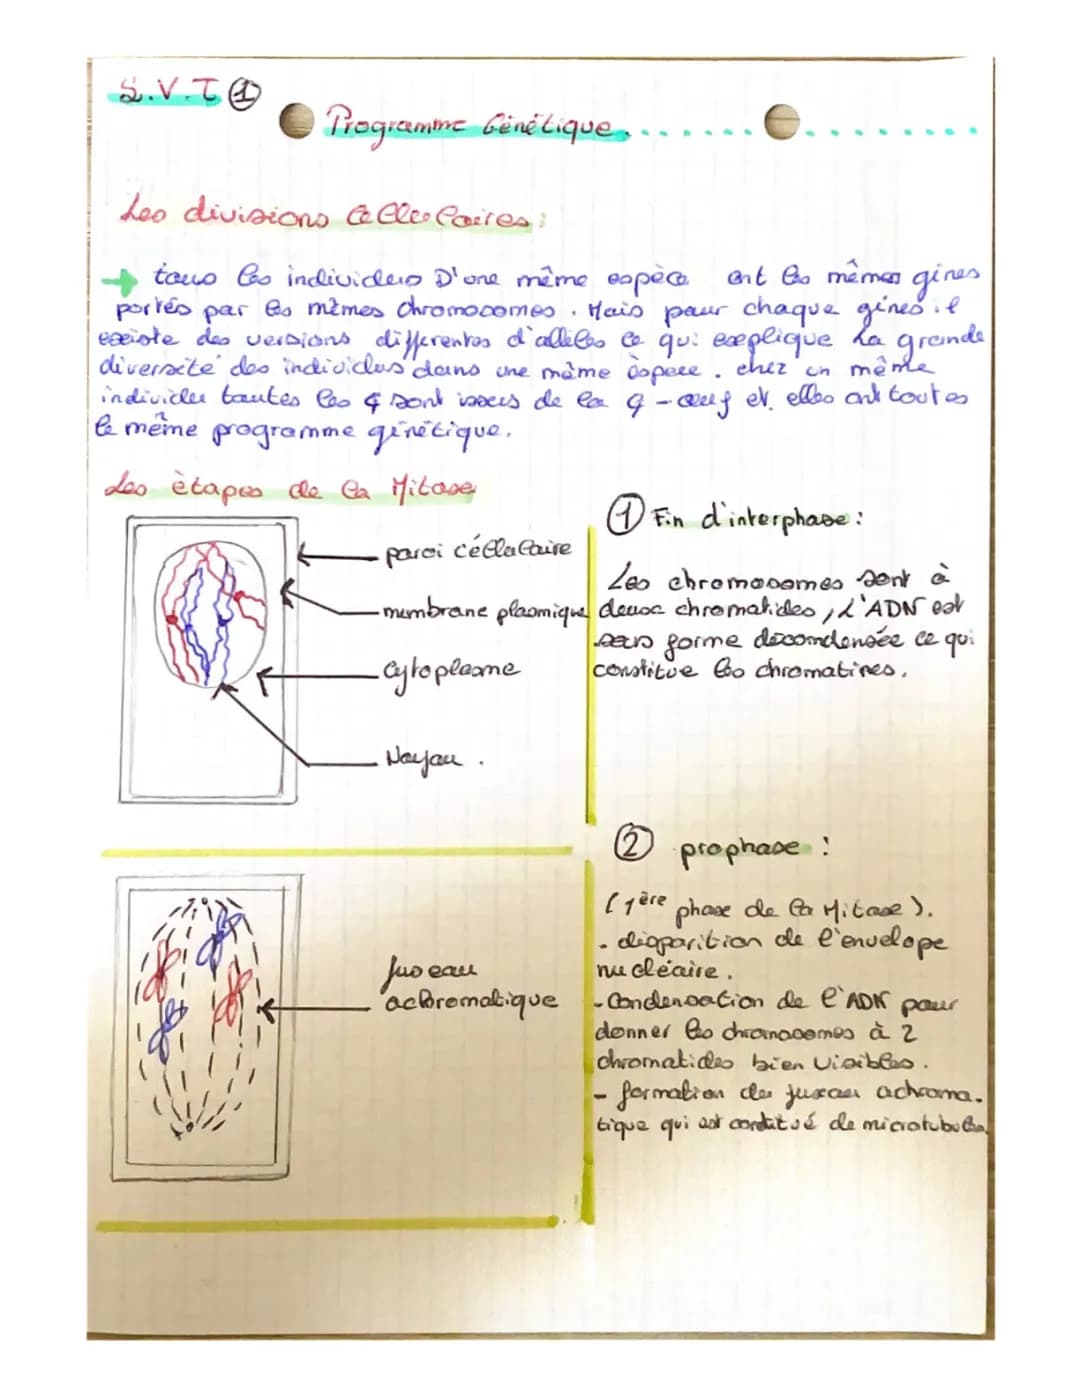 S.V.T ①
Programme Génétique.
Les divisions Cellulaires:
→ tous les individus D'une même espèce ont les mêmes gènes
portés par les mêmes chromosomes. Mais pour chaque gènes il
existe des versions differentes d'allèles ce qui explique La grande
diversité des individus dans une même éspece. chez un même
individu toutes les ¢ sont issus de la ¢-œuf et elles ont toutes
le même programme génétique.
Les ètapes de la Mitose
paroi céllulaire
membrane plasmique
Cytoplasme
Noyau.
① Fin d'interphase:
Les chromosomes sont à
deux chromatides, L'ADN est
sous forme décondensée ce qui
constitue les chromatines.
② prophase:
(1ère phase de la Mitose).
- disparition de l'envelope
nucléaire.
- Condensation de l'ADN pour
donner les chromosomes à 2
chromatides bien visibles.
- formation du fuseau achroma-
tique qui est constitué de microtubules
fuseau
achromatique